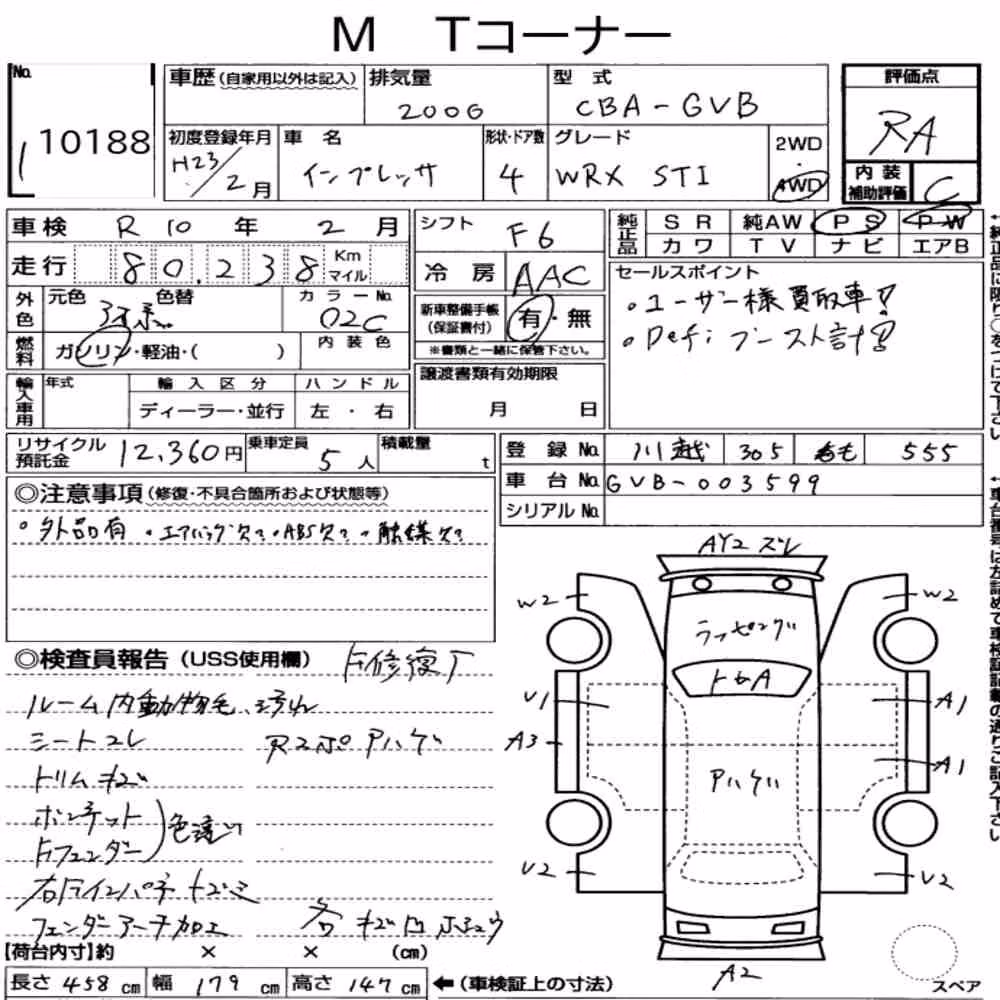 M Tコーナー
No. 10188
車歴(自家用以外は記入)
排気量 2000
型式 CBA-GVB
評価点 RA
初度登録年月 H23/2月
車名 インプレッサ
形状・ドア数 4
グレード WRX STI
2WD・4WD
内装補助評価 C
車検 R10年 2月
走行 80,238 Km マイル
シフト F6
冷房 AAC
純正品 SR 純AW PS PW
カワ TV ナビ エアB
外色 元色 色替
カラーNo. 02C
燃料 ガソリン・軽油・( )
内装色
新車整備手帳(保証書付) 有・無
※書類と一緒に保管下さい。
セールスポイント
・ユーザー様買取車!!
・Defiブースト計!!
輸入車用 年式 輸入区分 ハンドル
ディーラー・並行 左・右
譲渡書類有効期限
月 日
リサイクル預託金 12,360円
乗車定員 5人
積載量 t
登録No. 川越 305 555
車台No. GVB-003599
シリアルNo.
◎注意事項(修復・不具合箇所および状態等)
・外品有 ・エアバッグ欠? ・ABS欠? ・触媒欠?
◎検査員報告(USS使用欄) F修復歴
ルーム内動物毛、汚れ
シートコレ RスポPハゲ
トリムキズ
ボンネット
Fフェンダー)色違い
フェンダーアーチ加工
AY2 ズレ
W2
W2
ラッピング
トGA
U1
A1
A3
A1
Pハゲ
U2
U2
A2
スペア
【荷台内寸】約 × × (cm)
長さ 458 cm 幅 179 cm 高さ 147 cm ←(車検証上の寸法)